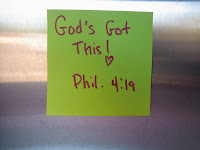 God's Got
This!
Phil. 4:19